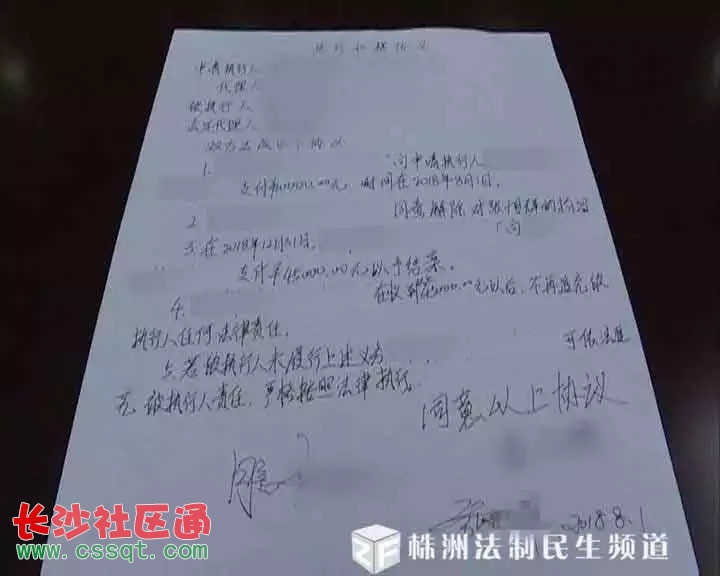 执行和解协议
申请执行人
代理人
被执行人
法定代理人
双方达成以下协议
1. 向申请执行人
支付 时间在2018年8月1日,
2. 同意解除对
3.在2018年12月31日, 向
支付¥45000.00元以予结案。
4. 在 元以后,不再追究被
执行人任何法律责任。
5.若被执行人未履行上述义务 可依法追
究被执行人责任,严格按照法律执行。
同意以上协议
同意
2018.8.1
长沙社区通
www.cssqt.com
株洲法制民生频道